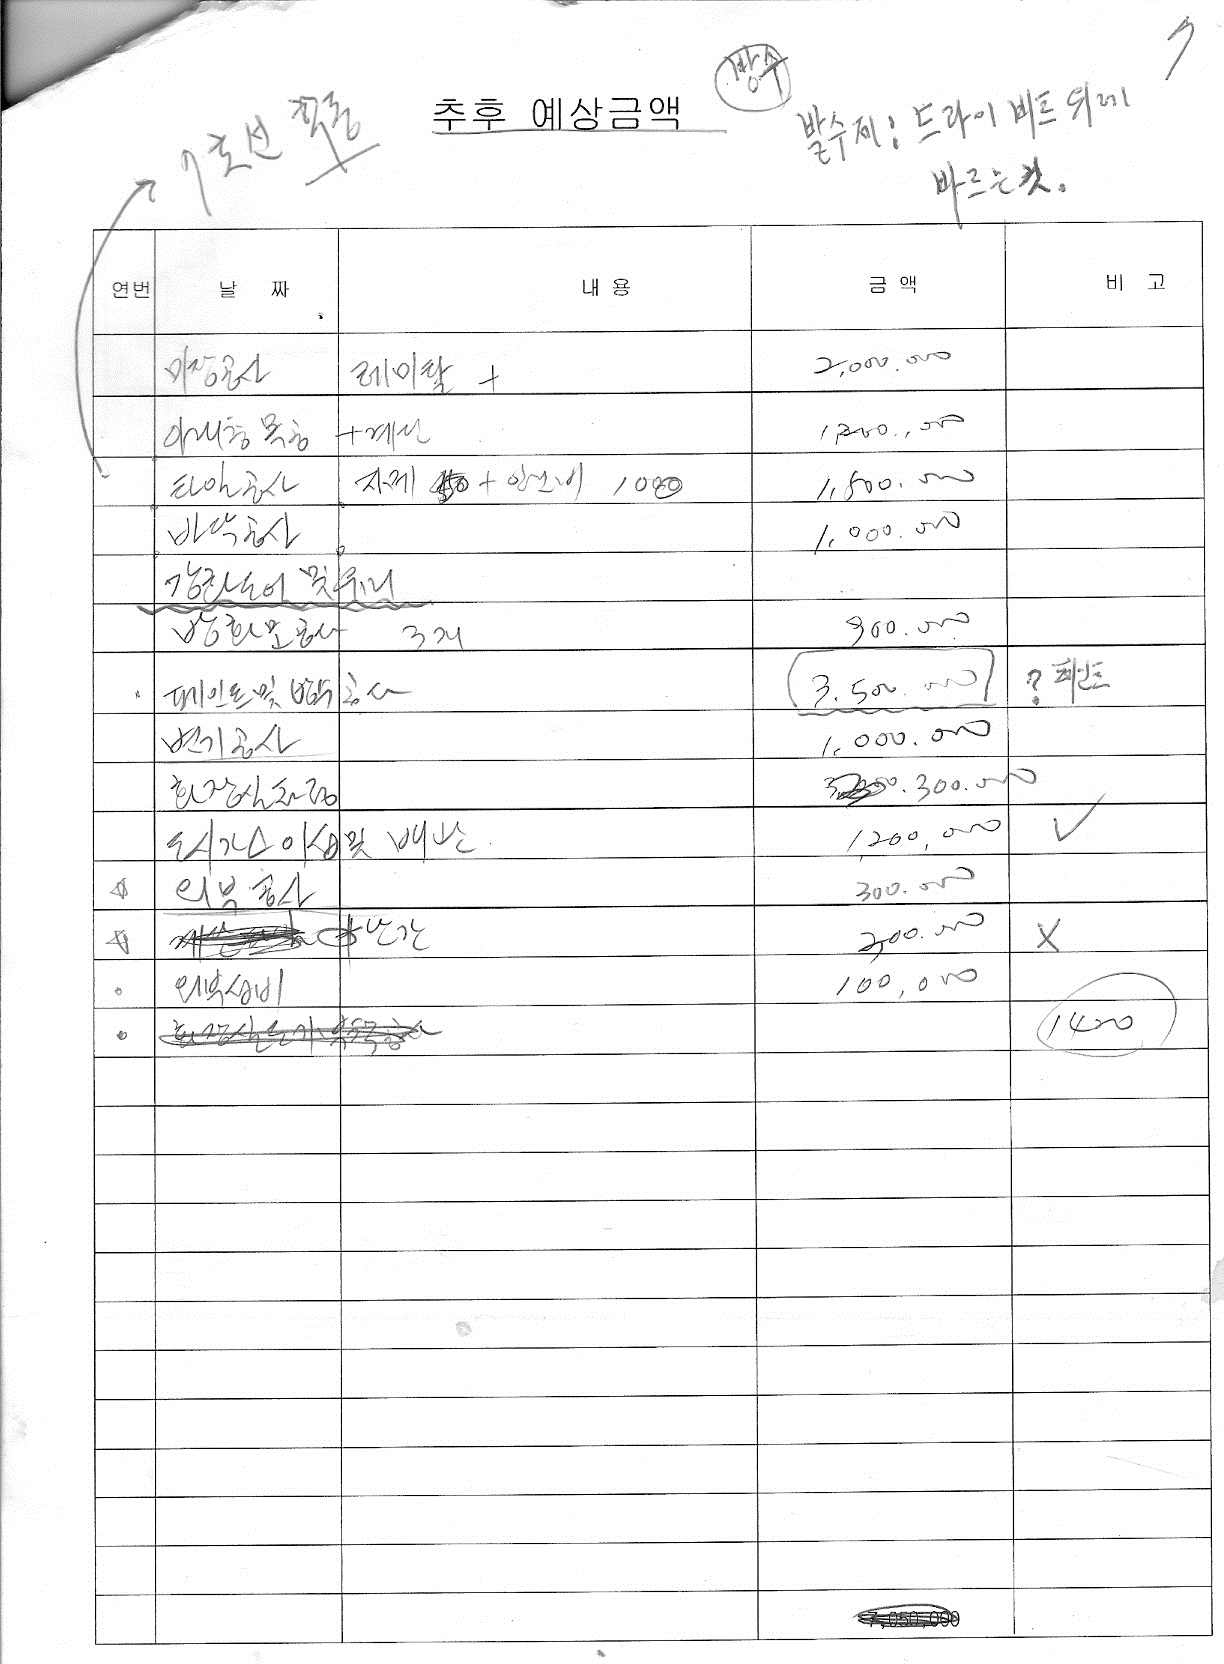 방수
추후 예상금액
7호선 학동
발수제; 드라이비트 위에
바르는것.
연번 날 짜 내 용 금 액 비 고
미장공사 레미탈 + 2,000.000
아래층 목공 + 계산
타일공사 자제 + 인건비 1000 1,800.000
바닥공사 1,000.000
강화도어 및 유리
방화문공사 3개 900.000
페인트 및 방수공사 3.500.000 ? 페인트
변기공사 1,000.000
화장실 300.000
도시가스 이설 및 배관 1,200,000 ✓
외부 공사 300.000
난간 200.000 X
외부설비 100,000
1400
7,050,000